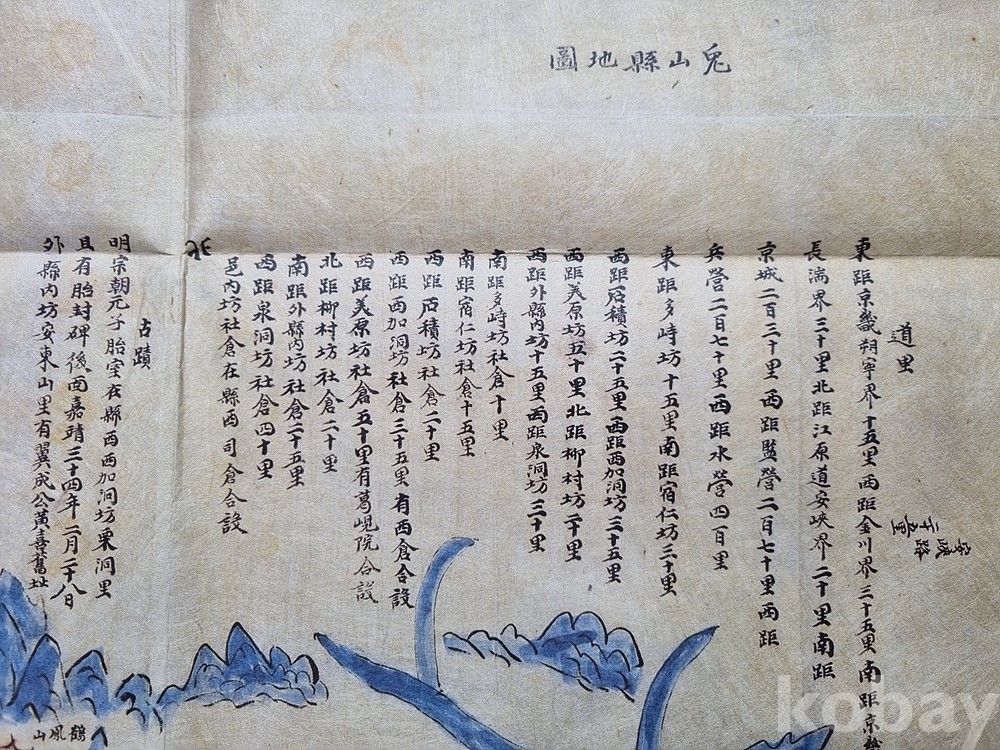 兎山縣地圖
道里
東距京畿朔寧界十五里西距金川界三十五里南距京畿
長湍界三十里北距江原道安峽界二十里南距
京城二百三十里西距監營二百七十里西距
兵營二百七十里西距水營四百里
東距多峙坊十五里南距宿仁坊三十里
西距石積坊二十五里西距西加洞坊三十五里
西距美原坊五十里北距柳村坊二十里
西距外縣內坊十五里西距泉洞坊三十里
南距多峙坊社倉十里
南距宿仁坊社倉十五里
西距石積坊社倉二十里
西距西加洞坊社倉三十五里有西倉合設
西距美原坊社倉五十里有葛峴院合設
北距柳村坊社倉二十里
南距外縣內坊社倉二十五里
西距泉洞坊社倉四十里
邑內坊社倉在縣西司倉合設
北
古蹟
明宗朝元子胎室在縣西西加洞坊栗洞里
且有胎封碑後面嘉靖三十四年二月二十八日
外縣內坊安東山里有翼成公黃喜舊址
安峽路
二十五里
鶴鳳山
kobay